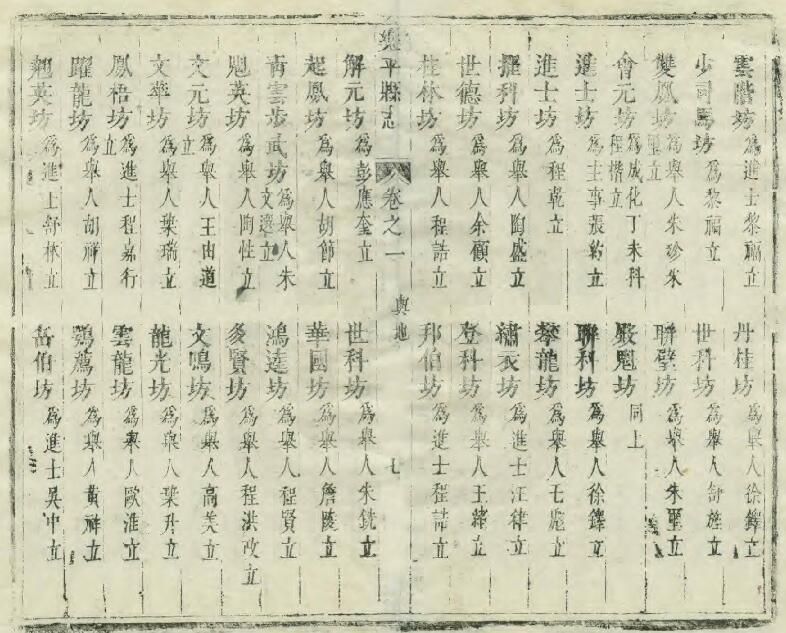 雲階坊 為進士黎福立
丹桂坊 為舉人徐鐸立
少司馬坊 為黎福立
世科坊 為舉人舒旌立
雙鳳坊 為舉人朱珍朱璽立
聯璧坊 為舉人朱璽立
會元坊 為成化丁未科程楷立
殿魁坊 同上
進士坊 為主事張約立
聯科坊 為舉人徐鐸立
進士坊 為程乾立
攀龍坊 為舉人王 立
擢科坊 為舉人陶盛立
繡衣坊 為進士汪律立
世德坊 為舉人余顧立
登科坊 為舉人王 立
桂林坊 為舉人程誥立
邦伯坊 為進士程誥立
樂平縣志 卷之一 輿地 七
解元坊 為彭應奎立
世科坊 為舉人朱銑立
起鳳坊 為舉人胡節立
華國坊 為舉人詹陵立
青雲步武坊 為舉人朱文選立
鴻逵坊 為舉人程賢立
魁英坊 為舉人陶性立
多賢坊 為舉人程洪改立
文元坊 為舉人王由道立
文鳴坊 為舉人高美立
文華坊 為舉人葉瑞立
龍光坊 為舉人葉升立
鳳梧坊 為進士程嘉行立
雲龍坊 為舉人歐淮立
躍龍坊 為舉人胡祥立
鶚薦坊 為舉人黃祥立
翹英坊 為進士舒林立
岳伯坊 為進士吳中立